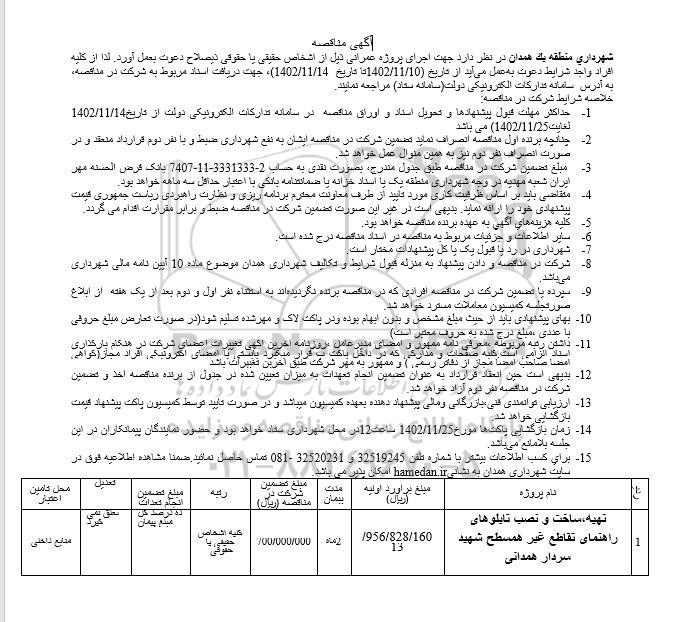 آگهی مناقصه
شهرداري منطقه يك همدان در نظر دارد جهت اجرای پروژه عمرانی ذیل از اشخاص حقیقی یا حقوقی ذیصلاح دعوت بعمل آورد. لذا از کلیه
افراد واجد شرایط دعوت به‌عمل می‌آید از تاریخ (1402/11/10تا تاریخ 1402/11/14)، جهت دریافت اسناد مربوط به شرکت در مناقصه،
به آدرس سامانه تدارکات الکترونیکی دولت(سامانه ستاد) مراجعه نمایند.
خلاصه شرایط شرکت در مناقصه:
1- حداکثر مهلت قبول پیشنهادها و تحویل اسناد و اوراق مناقصه در سامانه تدارکات الکترونیکی دولت از تاریخ1402/11/14
لغایت1402/11/25) می باشد
2- چنانچه برنده اول مناقصه انصراف نماید تضمین شرکت در مناقصه ایشان به نفع شهرداری ضبط و با نفر دوم قرارداد منعقد و در
صورت انصراف نفر دوم نیز به همین منوال عمل خواهد شد.
3- مبلغ تضمین شرکت در مناقصه طبق جدول مندرج، بصورت نقدی به حساب 2-3331333-11-7407 بانک قرض الحسنه مهر
ایران شعبه مهدیه در وجه شهرداری منطقه یک یا اسناد خزانه یا ضمانتنامه بانکی با اعتبار حداقل سه ماهه خواهد بود.
4- متقاضی باید بر اساس ظرفیت کاری مورد تایید از طرف معاونت محترم برنامه ریزی و نظارت راهبردی ریاست جمهوری قیمت
پیشنهادی خود را ارائه نماید. بدیهی است در غیر این صورت تضمین شرکت در مناقصه ضبط و برابر مقرارت اقدام می گردد.
5- کلیه هزینه‌های آگهی به عهده برنده مناقصه خواهد بود.
6- سایر اطلاعات و جزئیات مربوط به مناقصه در اسناد مناقصه درج شده است.
7- شهرداری در رد یا قبول یک یا کل پیشنهادات مختار است
8- شرکت در مناقصه و دادن پیشنهاد به منزله قبول شرایط و تکالیف شهرداری همدان موضوع ماده 10 آیین نامه مالی شهرداری
می‌باشد.
9- سپرده یا تضمین شرکت در مناقصه افرادی که در مناقصه برنده نگردیده‌اند به استثناء نفر اول و دوم بعد از یک هفته از ابلاغ
صورتجلسه کمیسیون معاملات مسترد خواهد شد
10- بهای پیشنهادی باید از حیث مبلغ مشخص و بدون ابهام بوده ودر پاکت لاک و مهرشده تسلیم شود(در صورت تعارض مبلغ حروفی
با عددی ،مبلغ درج شده به حروف معتبر است)
11- داشتن رتبه مربوطه ،معرفی نامه ممهور و امضای مدیرعامل ،روزنامه آخرین آگهی تغییرات اعضای شرکت در هنگام بارگذاری
اسناد الزامی است کلیه صفحات و مدارکی که در داخل پاکت ب قرار میگیرد بایستی با امضای الکترونیکی افراد مجاز(گواهی
امضا صاحب امضا مجاز از دفاتر رسمی ) و ممهور به مهر شرکت طبق آخرین تغییرات باشد
12- بدیهی است حین انعقاد قرارداد به عنوان تضمین انجام تعهدات به میزان تعیین شده در جدول از برنده مناقصه اخذ و تضمین
شرکت در مناقصه نفر دوم آزاد خواهد شد.
13- ارزیابی توانمندی فنی،بازرگانی ومالی پیشنهاد دهنده بعهده کمیسیون میباشد و در صورت تایید توسط کمیسیون پاکت پیشنهاد قیمت
بازگشایی خواهد شد
14- زمان بازگشایی پاکت‌ها مورخ1402/11/25 ساعت12در محل شهرداری ستاد خواهد بود و حضور نمایندگان پیمانکاران در این
جلسه بلامانع می‌باشد.
15- برای کسب اطلاعات بیشتر با شماره تلفن 32519245 و 32520231 -081 تماس حاصل نمائید.ضمنا مشاهده اطلاعیه فوق در
سایت شهرداری همدان به نشانیhamedan.ir امکان پذیر می باشد.
نام پروژه	مبلغ برآورد اولیه (ریال)	مدت پیمان	مبلغ تضمین شرکت در مناقصه (ریال)	رتبه	مبلغ تضمین انجام تعهدات	تعدیل	محل تامین اعتبار
1	تهیه،ساخت و نصب تابلوهای راهنمای تقاطع غیر همسطح شهید سردار همدانی	13/956/828/160	2ماه	700/000/000	کلیه اشخاص حقیقی یا حقوقی	ده درصد کل مبلغ پیمان	تعلق نمی گیرد	منابع داخلی